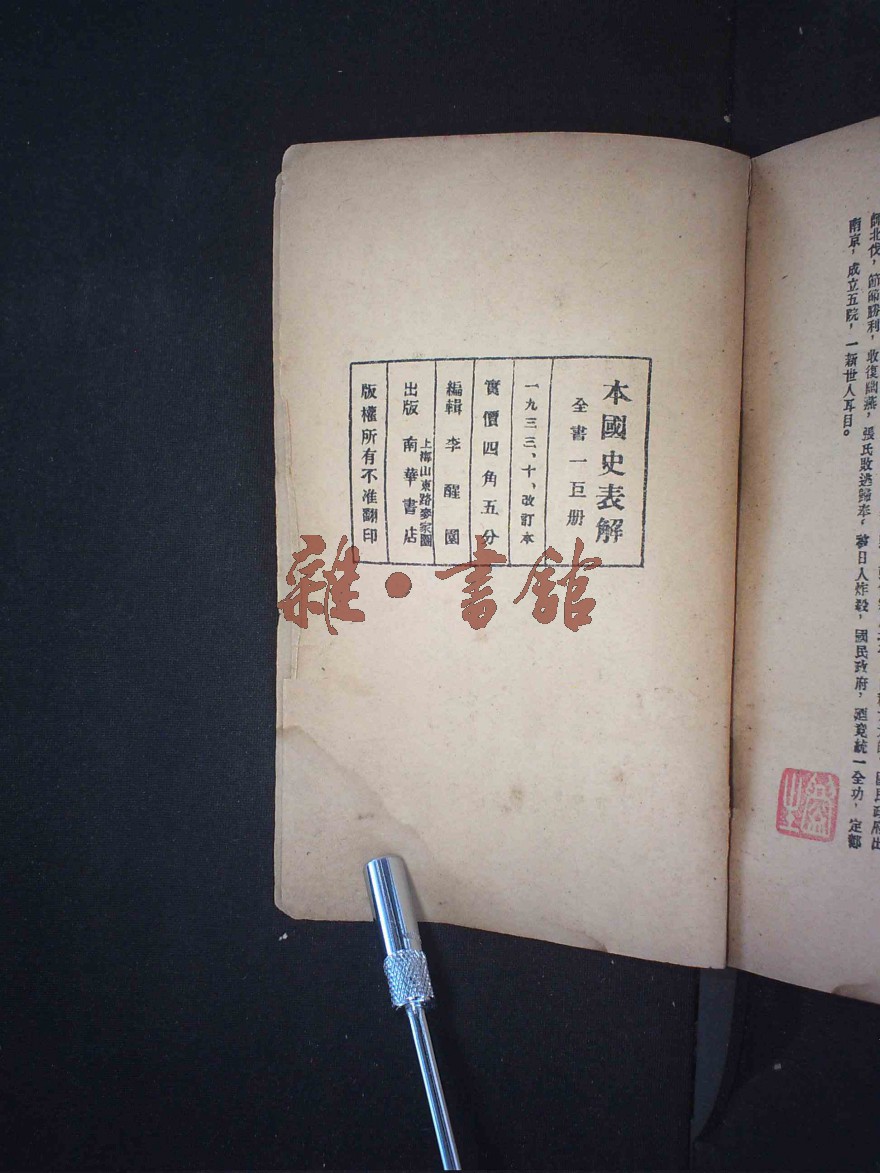 師北伐，節節勝利，收復關燕，張氏敗逃歸奉，被日人炸殺，國民政府，迺竟統一全功，定都
南京，成立五院，一新世人耳目。
本國史表解
全書一巨册
一九三三、十、改訂本
實價四角五分
編輯 李醒園
上海山東路麥家圈
出版 南華書店
版權所有不准翻印
雜·書館